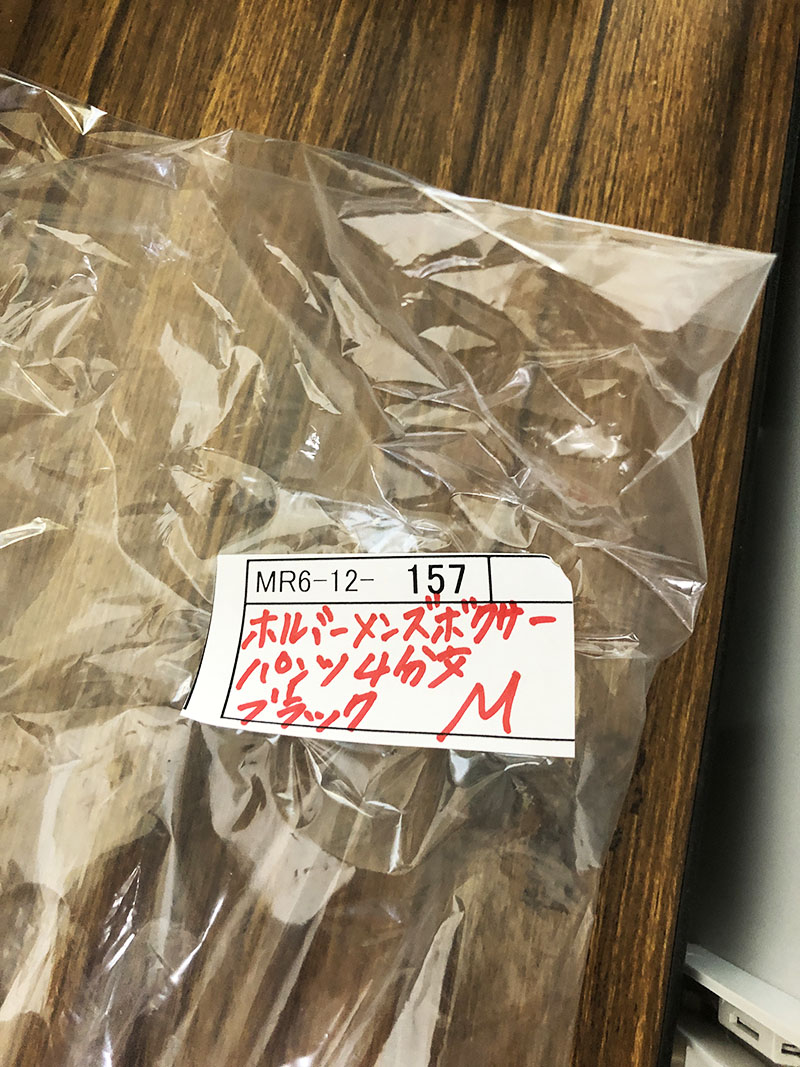 MR6-12- 157
ホルバーメンズボクサー
パンツ4分丈
ブラック M